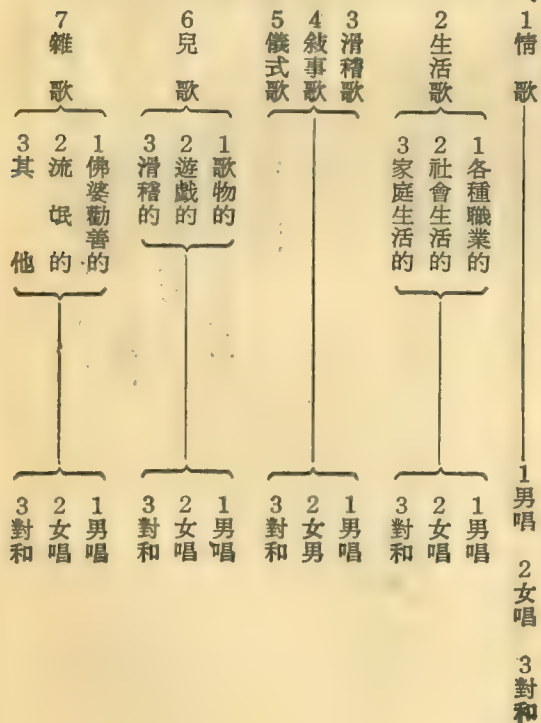 1情歌
1男唱 2女唱 3對和
2生活歌
1各種職業的
2社會生活的
3家庭生活的
1男唱
2女唱
3對和
3滑稽歌
4敍事歌
5儀式歌
1男唱
2女男
3對和
6兒歌
1歌物的
2遊戲的
3滑稽的
1男唱
2女唱
3對和
7雜歌
1佛婆勸善的
2流氓的
3其他
1男唱
2女唱
3對和